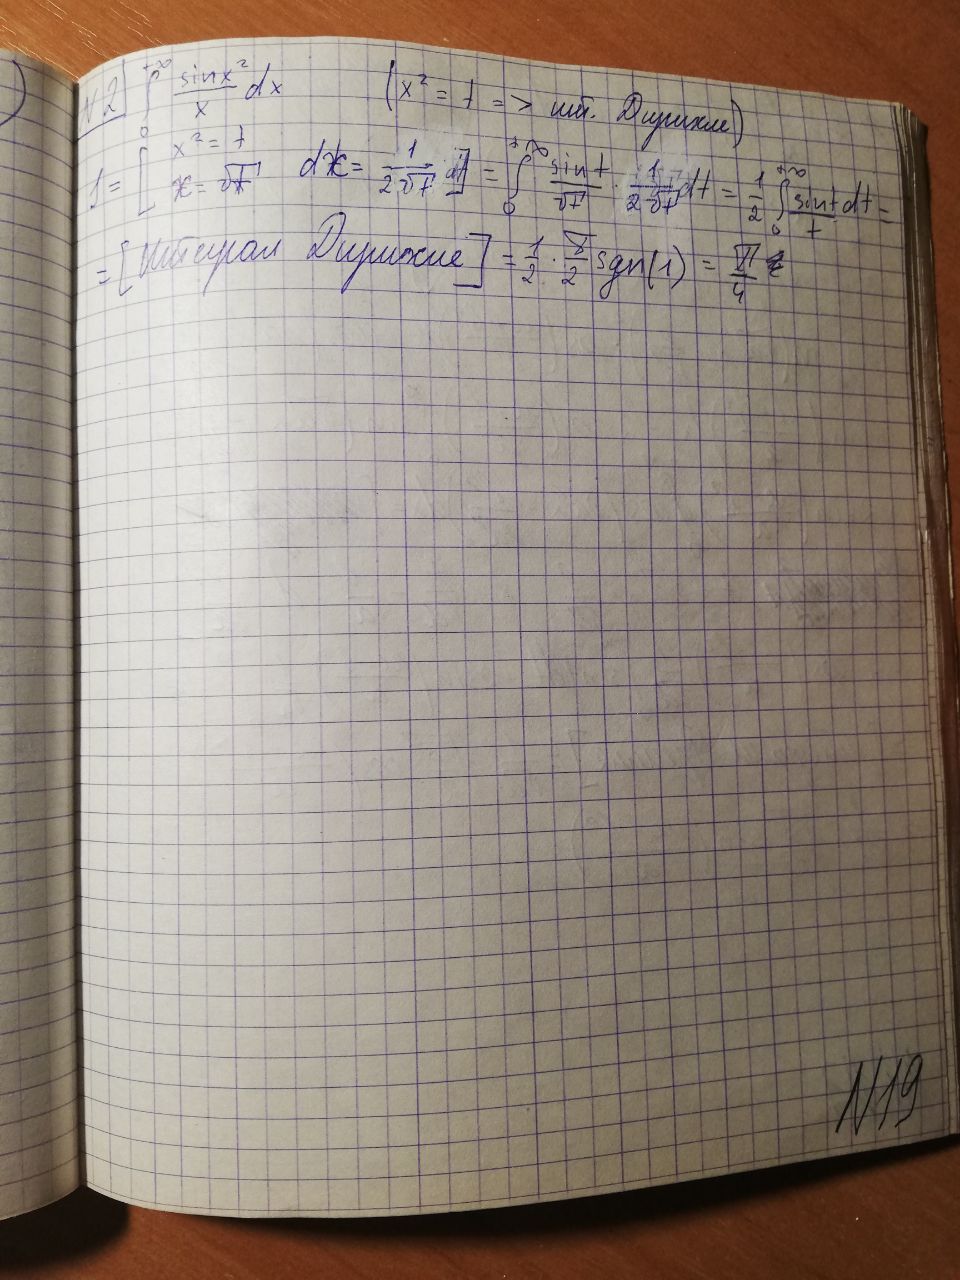 №2] ∫₀^{+∞} sinx²/x dx (x² = t => инт. Дирихле)
J = [ x² = t x = √t dx = 1/(2√t) dt ] = ∫₀^{+∞} sin t/√t · 1/(2√t) dt = 1/2 ∫₀^{+∞} sint/t dt =
= [Интеграл Дирихле] = 1/2 · π/2 sgn(1) = π/4
N19